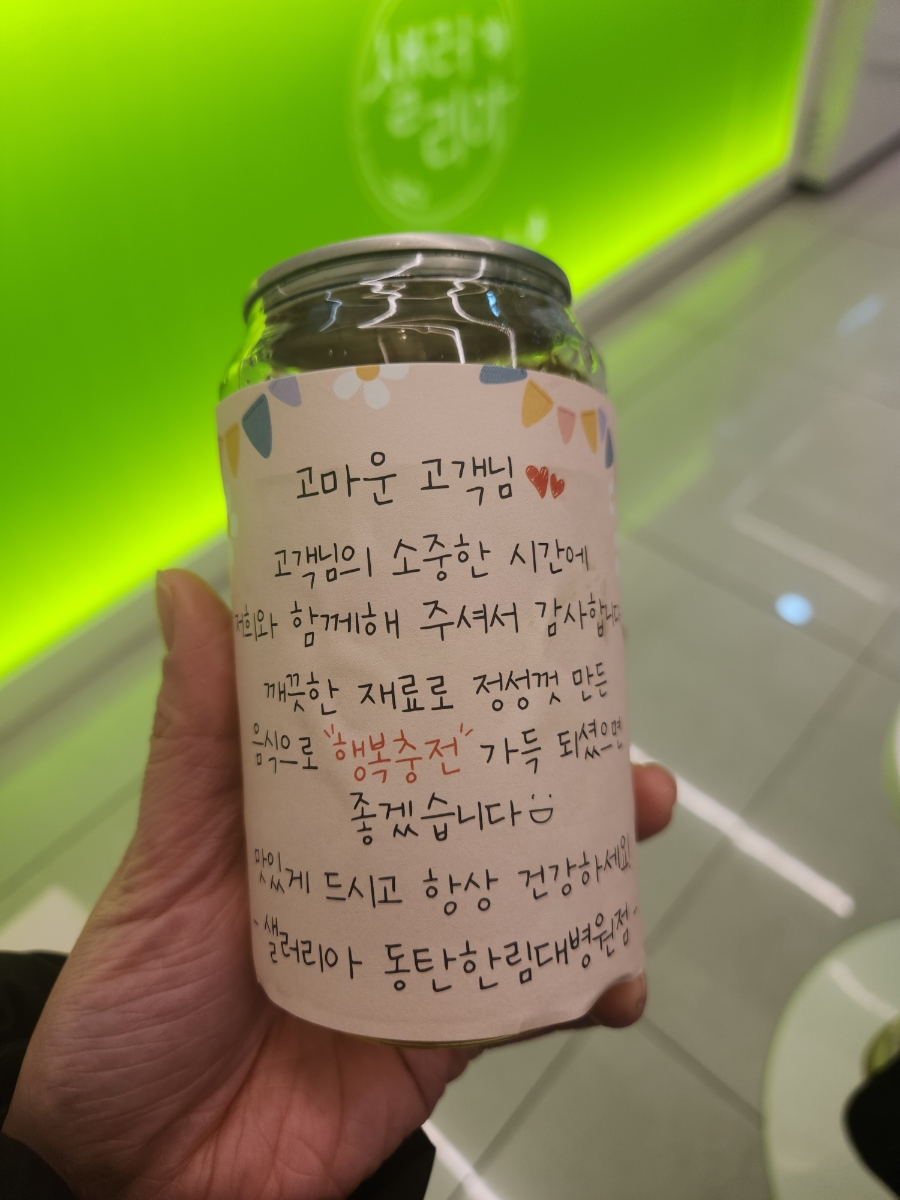 샐러리아
고마운 고객님
고객님의 소중한 시간에
저희와 함께해 주셔서 감사합니다
깨끗한 재료로 정성껏 만든
음식으로 "행복충전" 가득 되셨으면
좋겠습니다
맛있게 드시고 항상 건강하세요!
- 샐러리아 동탄한림대병원점 -